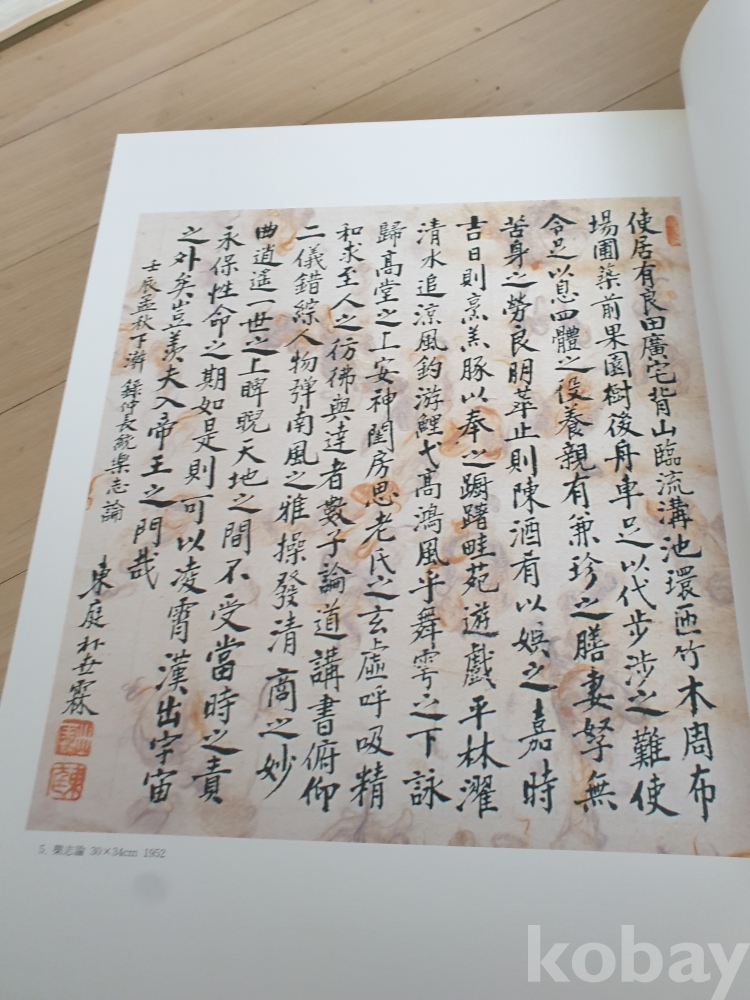 使居有良田廣宅背山臨流溝池環匝竹木周布
場圃築前果園樹後舟車足以代步涉之難使
令足以息四體之役養親有兼珍之膳妻孥無
苦身之勞良朋萃止則陳酒肴以娛之嘉時
吉日則烹羔豚以奉之蹰躇畦苑遊戲平林濯
清水追涼風釣游鯉弋高鴻風乎舞雩之下詠
歸高堂之上安神閨房思老氏之玄虛呼吸精
和求至人之彷彿與達者數子論道講書俯仰
二儀錯綜人物弹南風之雅操發清商之妙
曲逍遥一世之上睥睨天地之間不受當時之責
永保性命之期如是則可以凌霄漢出宇宙
之外矣豈羨夫入帝王之門哉
壬辰孟秋下澣 錄仲長統樂志論
東庭朴世霖
5. 樂志論 30×34cm 1952
kobay